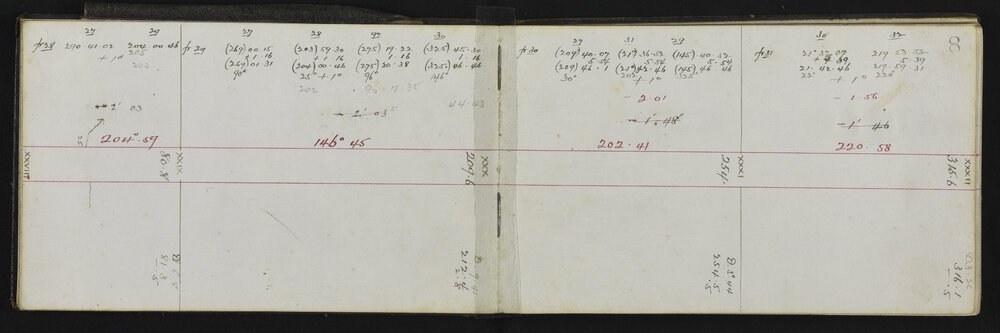 27 29 27 28 32 30
fr 28 290.41.02 204.00.46 fr 29 (269) 00.15 (203) 59.30 (275) 19.22 (325) 45.30
205 1.16 + 1.16 1.16 1.16
+ 1° (269) 01.31 (204) 00.46 (275) 20.38 (325) 46.46
203 90° 25° + 1° 96° 146°
202 96 15 35
2' 03 - 2'. 03" 44.43
204°.59 146° 45
XXVIII XXIX 80.8 XXX 209.6
81.3
.5
212.4
27 31 29 30 32
fr 30 (209) 40.07 (21°) 36.52 (145) 40.52 fr 31 21° 37.07 219.53.52
5.54 5.54 5.54 + 5.39 5.39
(209) 46.1 (21°) 42.46 (145) 46.46 21.42.46 219.59.31
30° 202° + 1° 325° 22° + 1° 220°
- 2.01 - 1.56
- 1'. 48" - 1' 46
202.41 220.58
XXXI 254. XXXII 315.6
8
D 3° 44
254.5
.5
316.1
.5